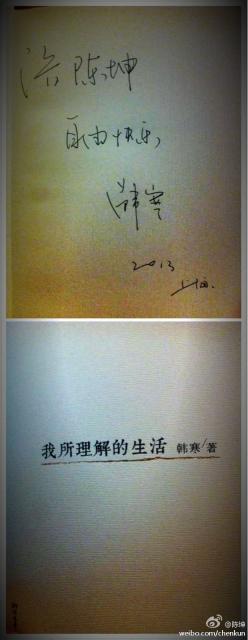 给陈坤
自由快乐
韩寒
2013
上海.
我所理解的生活 韩寒/著
@陈坤
weibo.com/chenkun